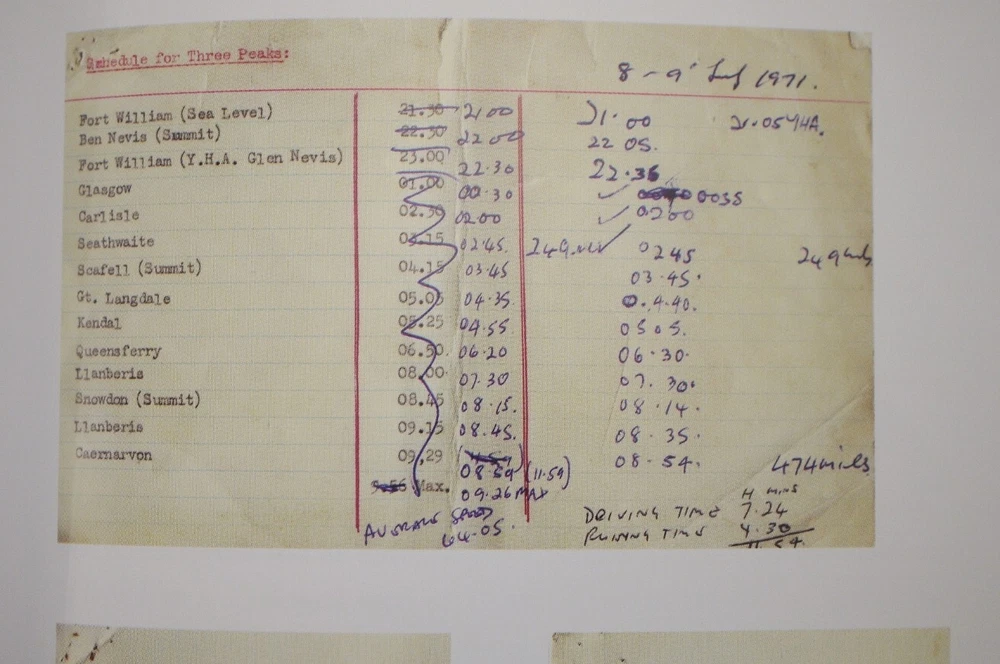 Schedule for Three Peaks:
8-9 July 1971.
Fort William (Sea Level) 21.30 21 00 21.00 21.05 YHA.
Ben Nevis (Summit) 22.30 22 00 22 05.
Fort William (Y.H.A. Glen Nevis) 23.00 22.30 22.36
Glasgow 01.00 00.30 0035
Carlisle 02.30 02.00 0200
Seathwaite 03.15 02.45. 0245
Scafell (Summit) 04.15 03.45 03.45.
Gt. Langdale 05.05 04.35. 0.4.40.
Kendal 05.25 04.55 0505.
Queensferry 06.50. 06.20 06.30.
Llanberis 08.00 07.30 07.30.
Snowdon (Summit) 08.45 08.15. 08.14.
Llanberis 09.15 08.45. 08.35.
Caernarvon 09.29 08.59 (11.59) 08.54. 474 miles
Max. 09.26 MAX
AVERAGE SPEED 64.05.
H MINS
DRIVING TIME 7.24
RUNNING TIME 4.30
11.54